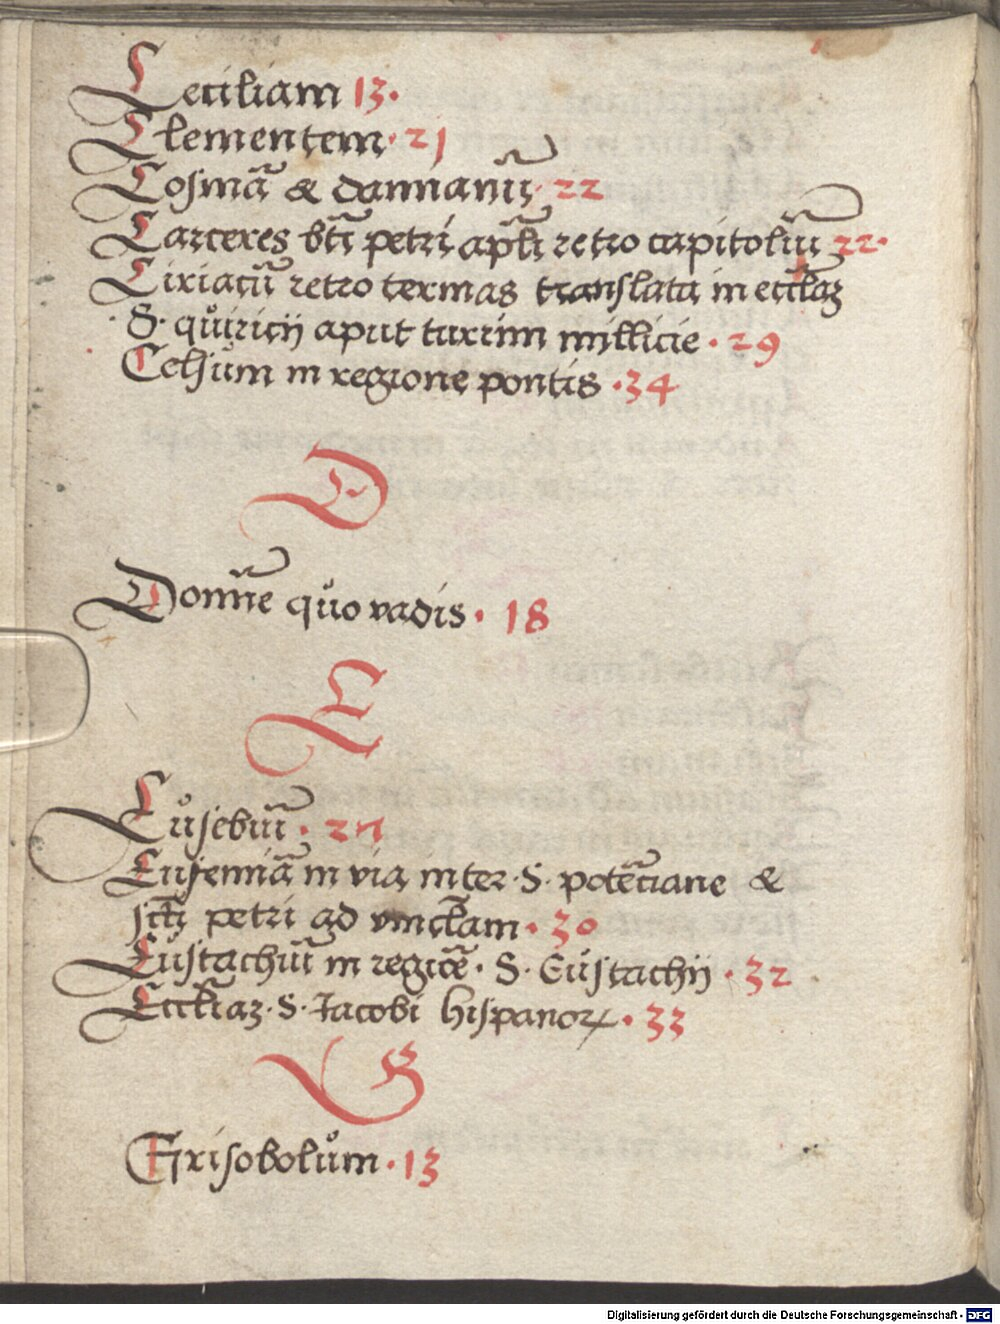 Ceciliam 13.
Clementem · 21
Cosmā & damianū · 22
Carceres bti petri apli retro capitoliū 22.
Ciriacū retro termas translata in eccłaz
S. quiricij aput turrim millicie · 29
Celsum in regione pontis · 34
D
Domīe quo vadis · 18
E
Eusebiū · 27
Eufemiā in via inter S. potēciane &
sctī petri ad vinctam · 30
Eustachiū in regiōe · S. Eustachij · 32
Eccłiaz · S. Jacobi hispanoꝝ · 33
G
Grisobolum · 13
Digitalisierung gefördert durch die Deutsche Forschungsgemeinschaft - DFG